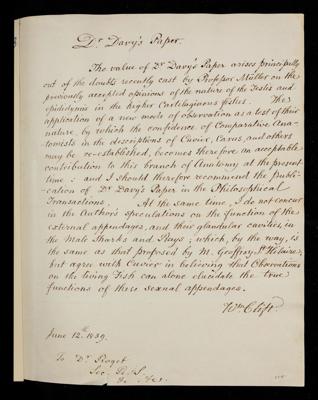 Dr. Davy's Paper.
The value of Dr Davy's Paper arises principally
out of the doubts recently cast by Professor Müller on the
previously accepted opinions of the nature of the Testes and
epididymis in the higher Cartilaginous fishes. The
application of a new mode of observation as a test of their
nature, by which the confidence of Comparative Ana-
tomists in the descriptions of Cuvier, Carus, and others
may be re-established, becomes therefore an acceptable
contribution to this branch of Anatomy at the present
time: and I should therefore recommend the publi-
cation of Dr Davy's Paper in the Philosophical
Transactions. At the same time, I do not concur
in the Author's speculations on the function of the
external appendages, and their glandular cavities, in
the Male Sharks and Rays; which, by the way, is
the same as that proposed by M. Geoffroy St. Hilaire,
but agree with Cuvier in believing that Observations
on the living Fish can alone elucidate the true
functions of these sexual appendages.
Wm Clift.
June 12th 1839.
To Dr. Roget
Sec. R.S.